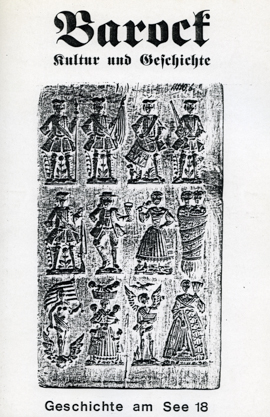 Barock
Kultur und Geschichte
Geschichte am See 18